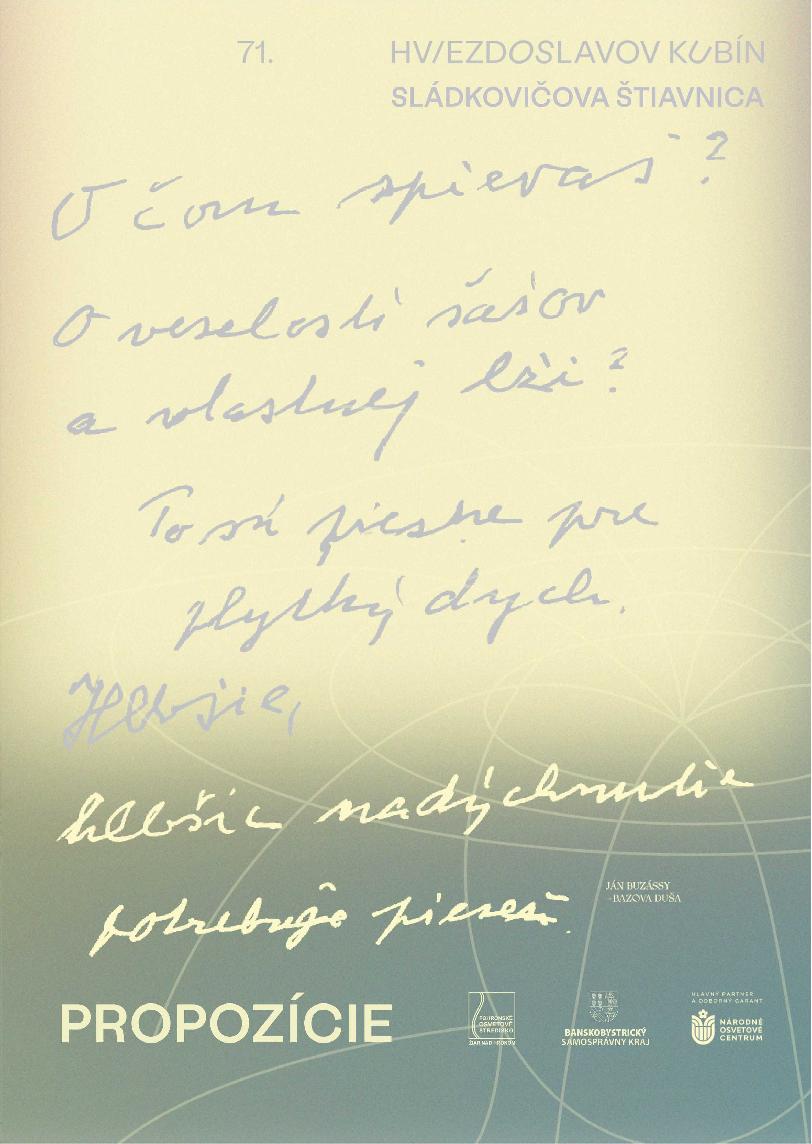 71.
HVIEZDOSLAVOV KUBÍN
SLÁDKOVIČOVA ŠTIAVNICA
O čom spievaš?
O veselosti šašov
a vlastnej lži?
To sú piesne pre
plytký dych.
Hlbšie,
hlbšie nadýchnutie
potrebuje pieseň.
JÁN BUZÁSSY
-BAZOVA DUŠA
PROPOZÍCIE
POHRONSKÉ
OSVETOVÉ
STREDISKO
ŽIAR NAD HRONOM
BANSKOBYSTRICKÝ
SAMOSPRÁVNY KRAJ
HLAVNÝ PARTNER
A ODBORNÝ GARANT
NÁRODNÉ
OSVETOVÉ
CENTRUM